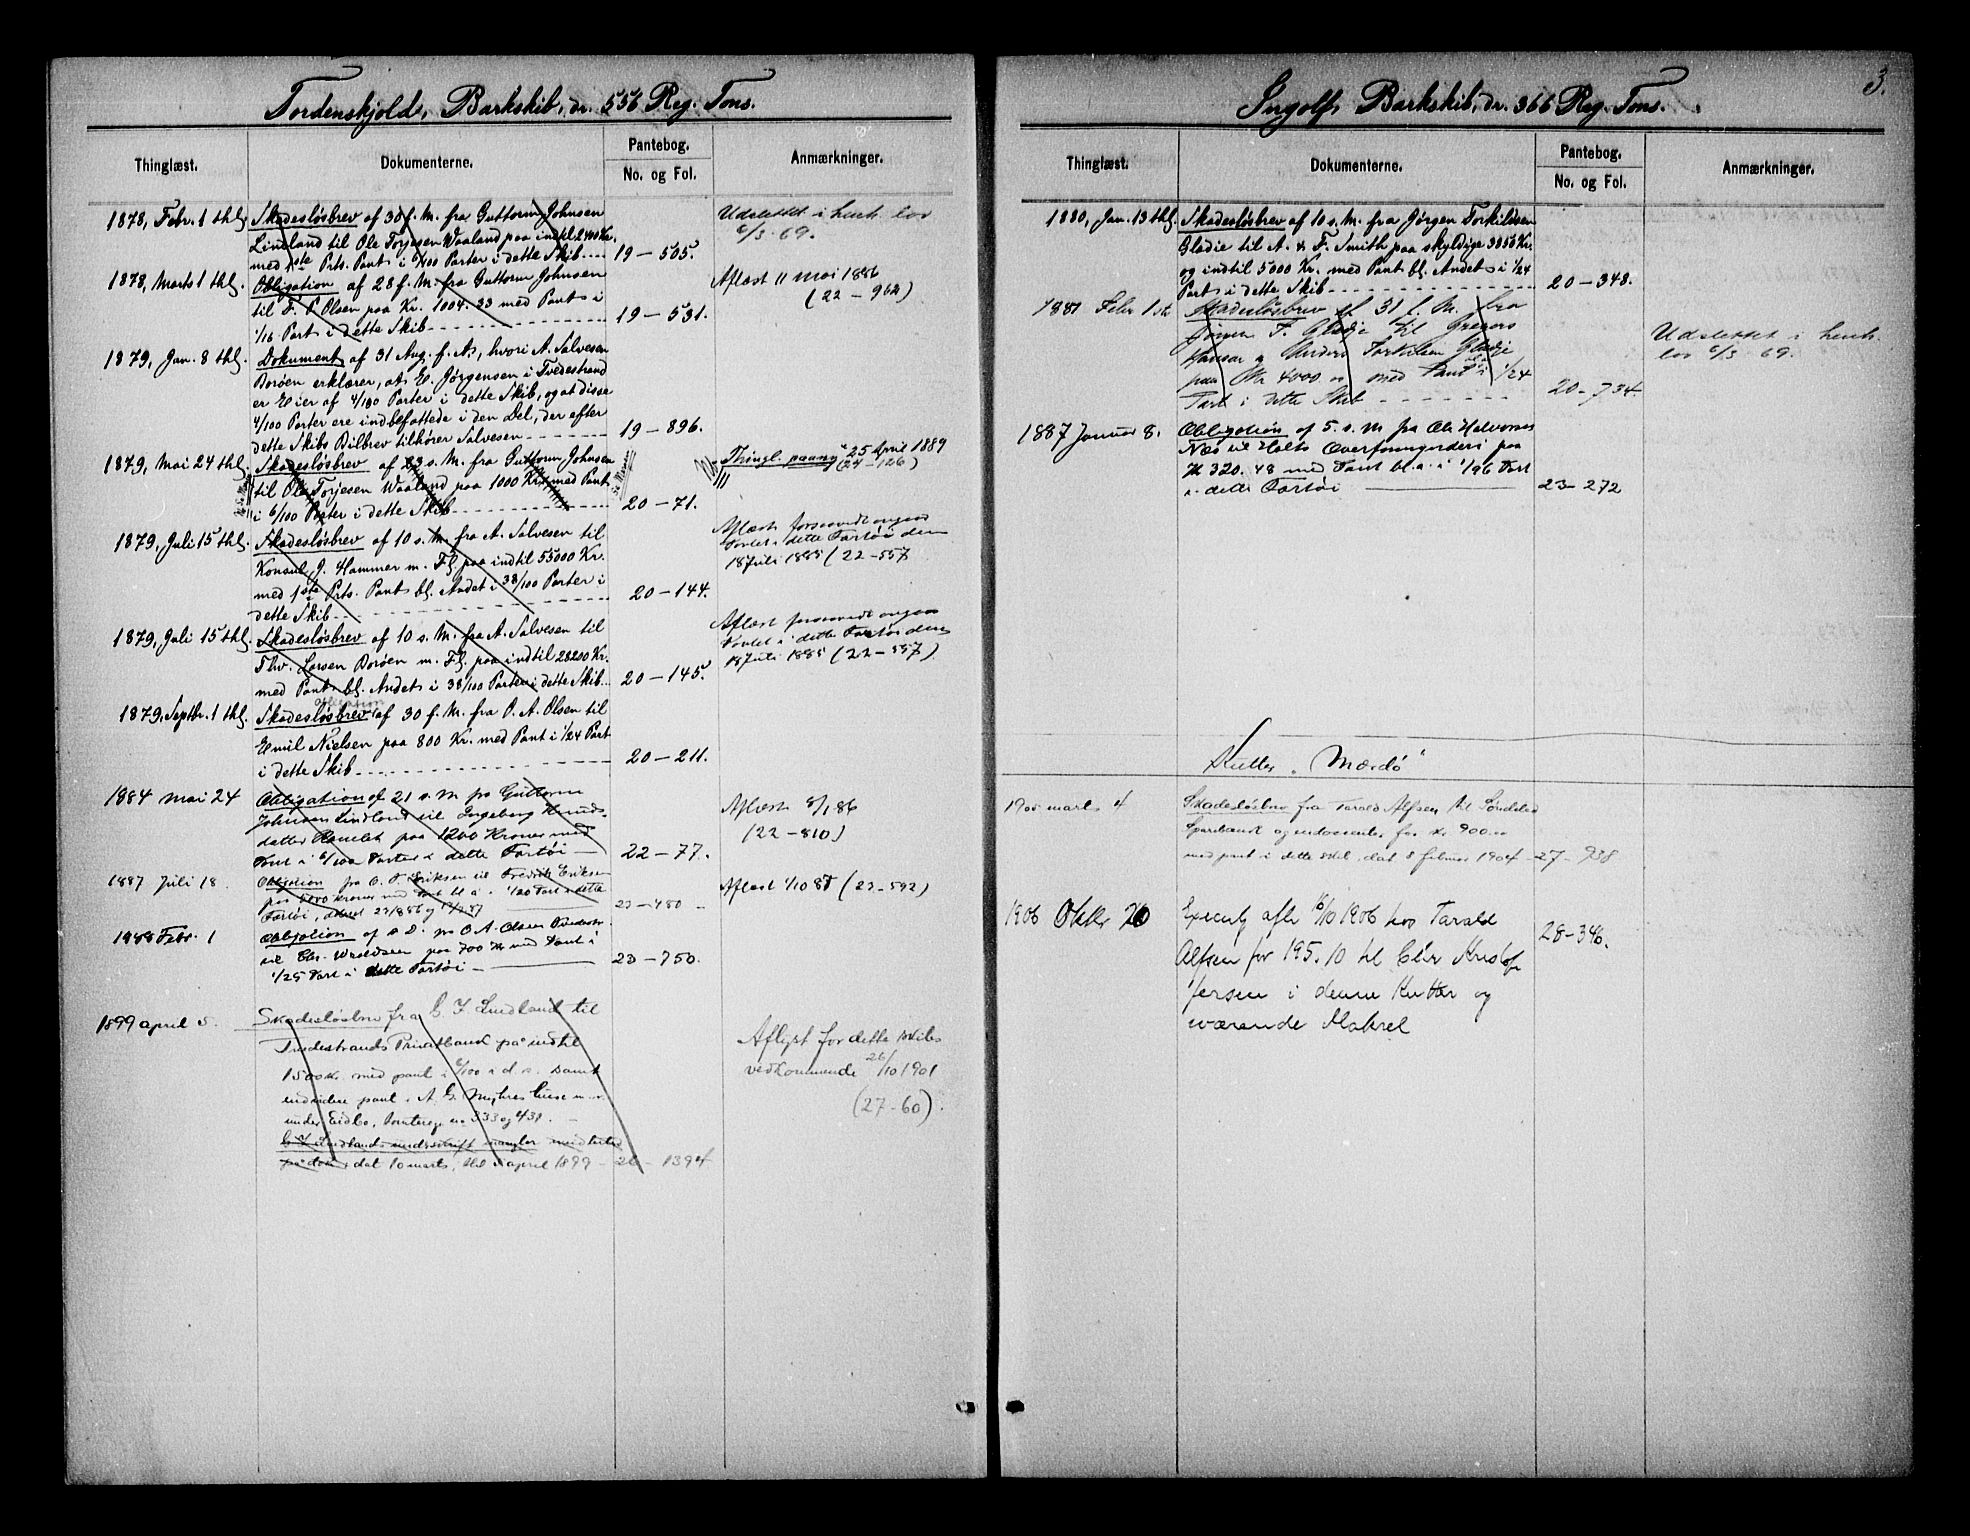 Tordenskjold, Barkskib, dr. 556 Reg. Tons.
Thinglæst.
Dokumenterne.
Pantebog.
No. og Fol.
Anmærkninger.
1878, Febr. 1 thl.
Skadesløsbrev af 30 f. M. fra Guttorm Johnsen
Lindland til Ole Torjesen Waaland paa indtil 2400 Kr.
med 1ste Prts. Pant i 6/100 Parter i dette Skib
19 – 505.
Udslettet i henh. lov
6/3-69.
1878, Marts 1 thl.
Obligation af 28 f. M. fra Guttorm Johnsen
til F. P. Olsen paa Kr. 1004.33 med Pant i
1/16 Part i dette Skib
19 – 531.
Aflæst 11 Mai 1886
(22 – 962)
1879, Jan. 8 thl.
Dokument af 31 Aug. f. A., hvori A. Salvesen
Borøen erklærer, at E. Jørgensen i Tvedestrand
er Eier af 4/100 Parter i dette Skib, og at disse
4/100 Parter ere indbefattede i den Del, der efter
dette Skibs Bilbrev tilhører Salvesen
19 – 896.
1879, Mai 24 thl.
Skadesløsbrev af 23 s. M. fra Guttorm Johnsen
til Ole Torjesen Waaland paa 1000 Kr. med Pant
i 6/100 Parter i dette Skib
20 – 71.
Thingl. paany 25 April 1889
(24 – 126)
1879, Juli 15 thl.
Skadesløsbrev af 10 s. M. fra A. Salvesen til
Konsul J. Hammer m. Fl. paa indtil 55000 Kr.
med 1ste Prts. Pant bl. Andet i 38/100 Parter i
dette Skib
20 – 144.
Aflæst forsaavidt angaar
i dette Fartøi den
18 Juli 1885 (22 – 557
1879, Juli 15 thl.
Skadesløsbrev af 10 s. M. fra A. Salvesen til
Thv. Larsen Borøen m. Fl. paa indtil 28200 Kr.
med Pant bl. Andet i 38/100 Parter i dette Skib
20 – 145.
Aflæst forsaavidt angaar
i dette Fartøi den
18 Juli 1885 (22 – 557)
1879, Septbr. 1 thl.
Obligation
Skadesløsbrev af 30 f. M. fra O. A. Olsen til
Emil Nielsen paa 800 Kr. med Pant i 1/24 Part
i dette Skib
20 – 211.
1884 Mai 24
Obligation af 21 s. M. fra Guttorm
Johnsen Lindland til Ingeborg Knuds-
datter Ramlet paa 1200 Kroner med
Pant i 6/100 Parter i dette Fartøi
22 – 77.
Aflæst 8/1 86
(22 – 810)
1887 Juli 18
Obligation fra O. T. Eriksen til Fredrik Eriksen
paa 5000 kroner med Pant bl. a. i 1/20 Part i dette
Fartøi,
23 – 480
Aflæst 1/10 87 (23 – 592)
1888 Febr. 1
Obligation af s. D. fra O. A. Olsen
til Chr. paa 700 Kr med Pant i
1/25 Part i dette Fartøi
23 – 750.
1899 april 5.
Skadesløsbrev fra G. J. Lindland til
Tvedestrands Privatbank på indtil
1500 kr. med pant i 6/100 i d. s. samt
endvidere pant i A. G. Myhres huse m. v.
under Eidbo, 333 og 431.
G. J. Lindlands underskrift mangler
på dok. dat. 10 marts, thl. 5 april 1899 – 26 – 1394
Aflyst for dette skibs
vedkommende 26/10 1901
(27 – 60).
3.
Ingolf, Barkskib, dr. 366 Reg. Tons.
Thinglæst.
Dokumenterne.
Pantebog.
No. og Fol.
Anmærkninger.
1880, Jan. 13 thl.
Skadesløsbrev af 10 s. M. fra Jørgen Torkildsen
Gladie til A. & F. Smith paa skyldige 3056 Kr.
og indtil 5000 Kr. med Pant bl. Andet i 1/24
Part i dette Skib
20 – 348.
1881 Febr 1ste
Skadesløsbrev af 31 f. M. fra
Jørgen T. Gladie til Gregers
Hansen og Anders Torkilsen Gladie
paa Kr 4000 00 med Pant bl. a. i 1/24
Part i dette Skib
20 – 734.
Udslettet i henh.
lov 6/3-69.
1887 Januar 8.
Obligation af 5. s. M fra Ole Halvorsen
Næs til Holts Overformynderi paa
Kr 320.48 med Pant bl. a. i 1/96 Part
i dette Fartøi
23 – 272
Kutter „Mærdö“
1905 marts 4
Skadesløsbrev fra Tarald Alfsen til Søndeled
Sparebank og endossenter for kr. 900.00
med pant i dette skib, dat 8 februar 1904
27 – 938
1906 Oktbr 20
Executf. afh. 16/10 1906 hos Tarald
Alfsen for 195.10 til Chr Kristof
fersen i denne Kutter og
værende Makrel
28 – 346.